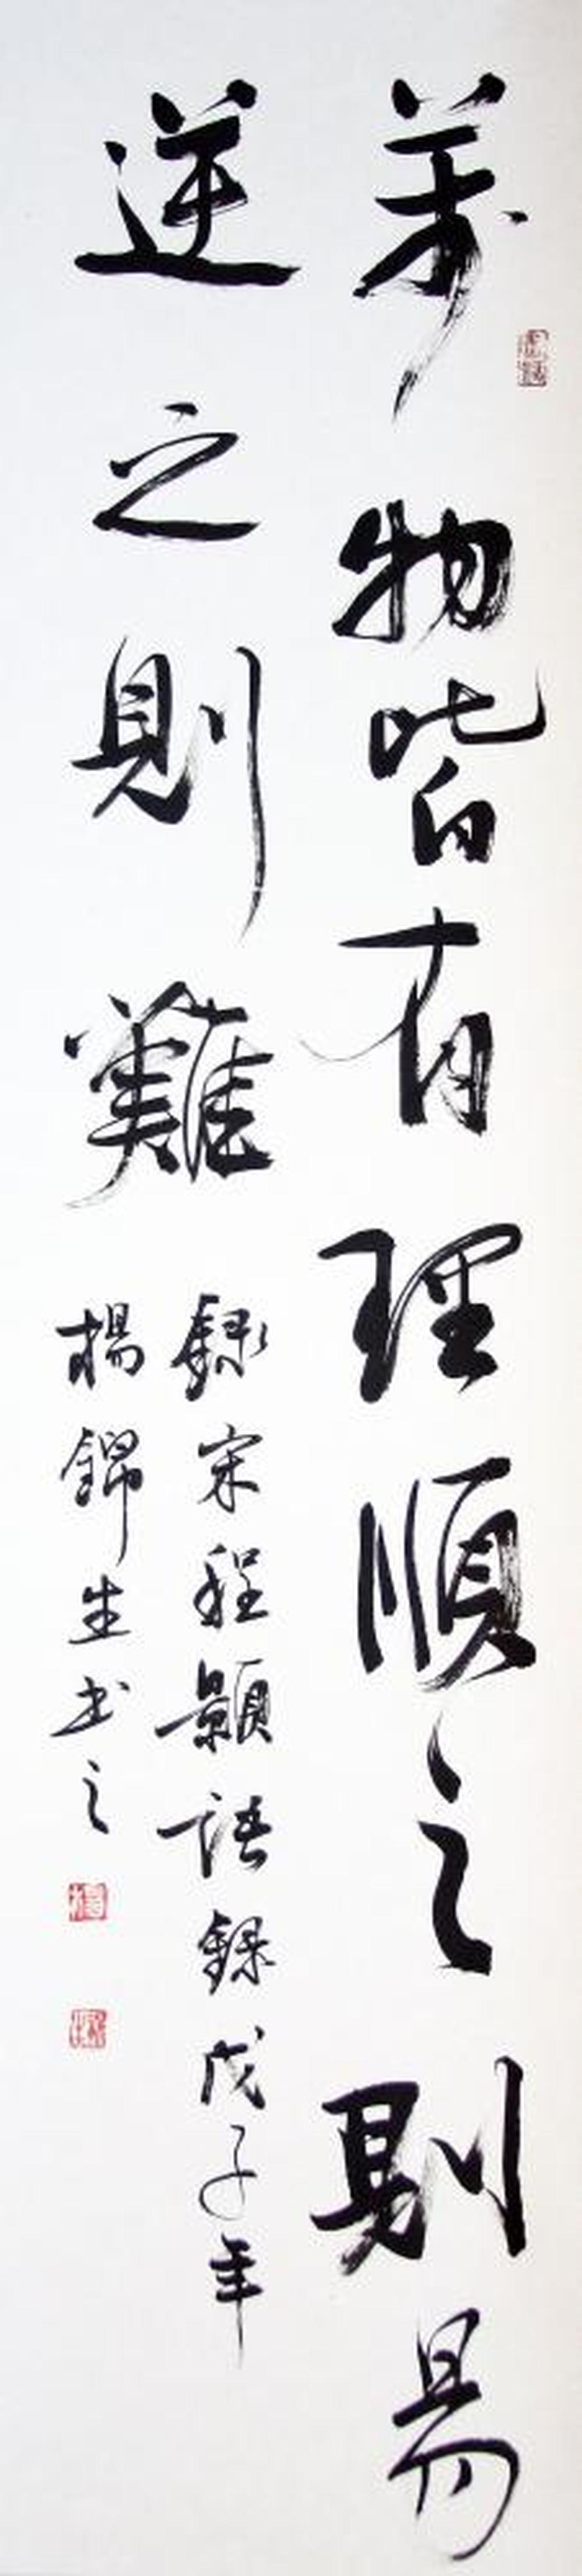 萬物皆有理順之則易
逆之則難
録宋程顥語録戊子年
楊錦生书之